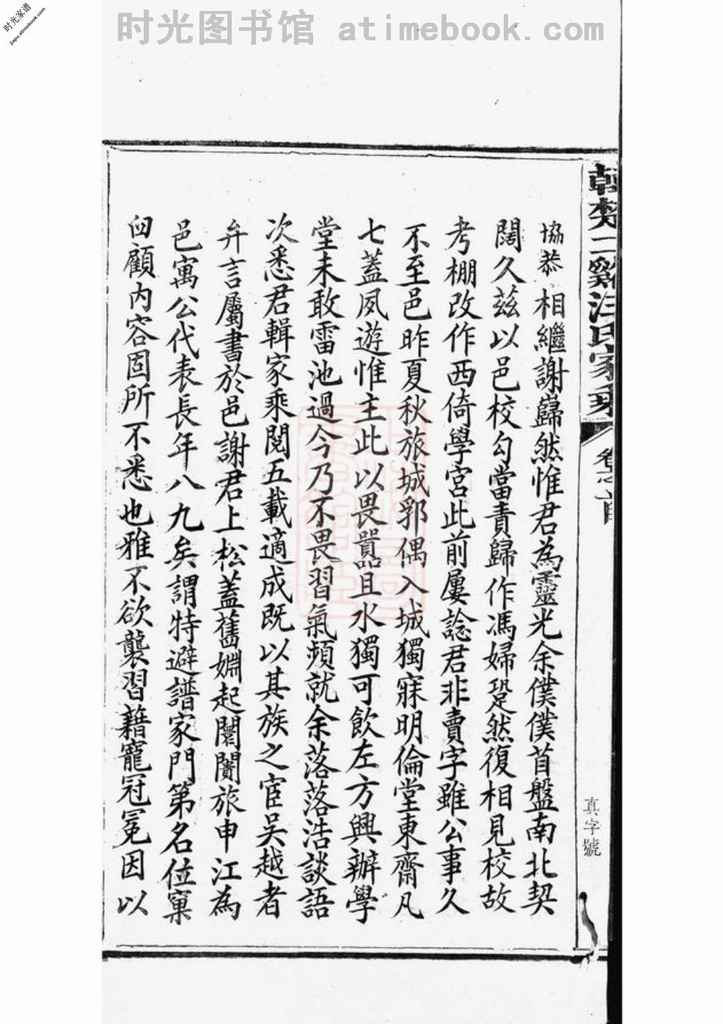 时光图书馆 atimebook.com
时光家谱
jiapu.atimebook.com
二谿汪氏家乘
卷之首
真字號
協恭相繼謝巋然惟君為靈光余僕僕首盤南北契
闊久茲以邑校勾當責歸作馮婦跫然復相見校故
考棚改作西倚學宮此前屢諗君非賣字雖公事久
不至邑昨夏秋旅城郛偶入城獨寐明倫堂東齋凡
七蓋夙遊惟主此以畏囂且水獨可飲左方興辦學
堂未敢雷池過今乃不畏習氣頻就余落落浩談語
次悉君輯家乘閱五載適成既以其族之宦吳越者
弁言屬書於邑謝君上松蓋舊姻起闤闠旅申江為
邑寓公代表長年八九矣謂特避譜家門第名位窠
臼顧內容固所不悉也雅不欲襲習藉寵冠冕因以